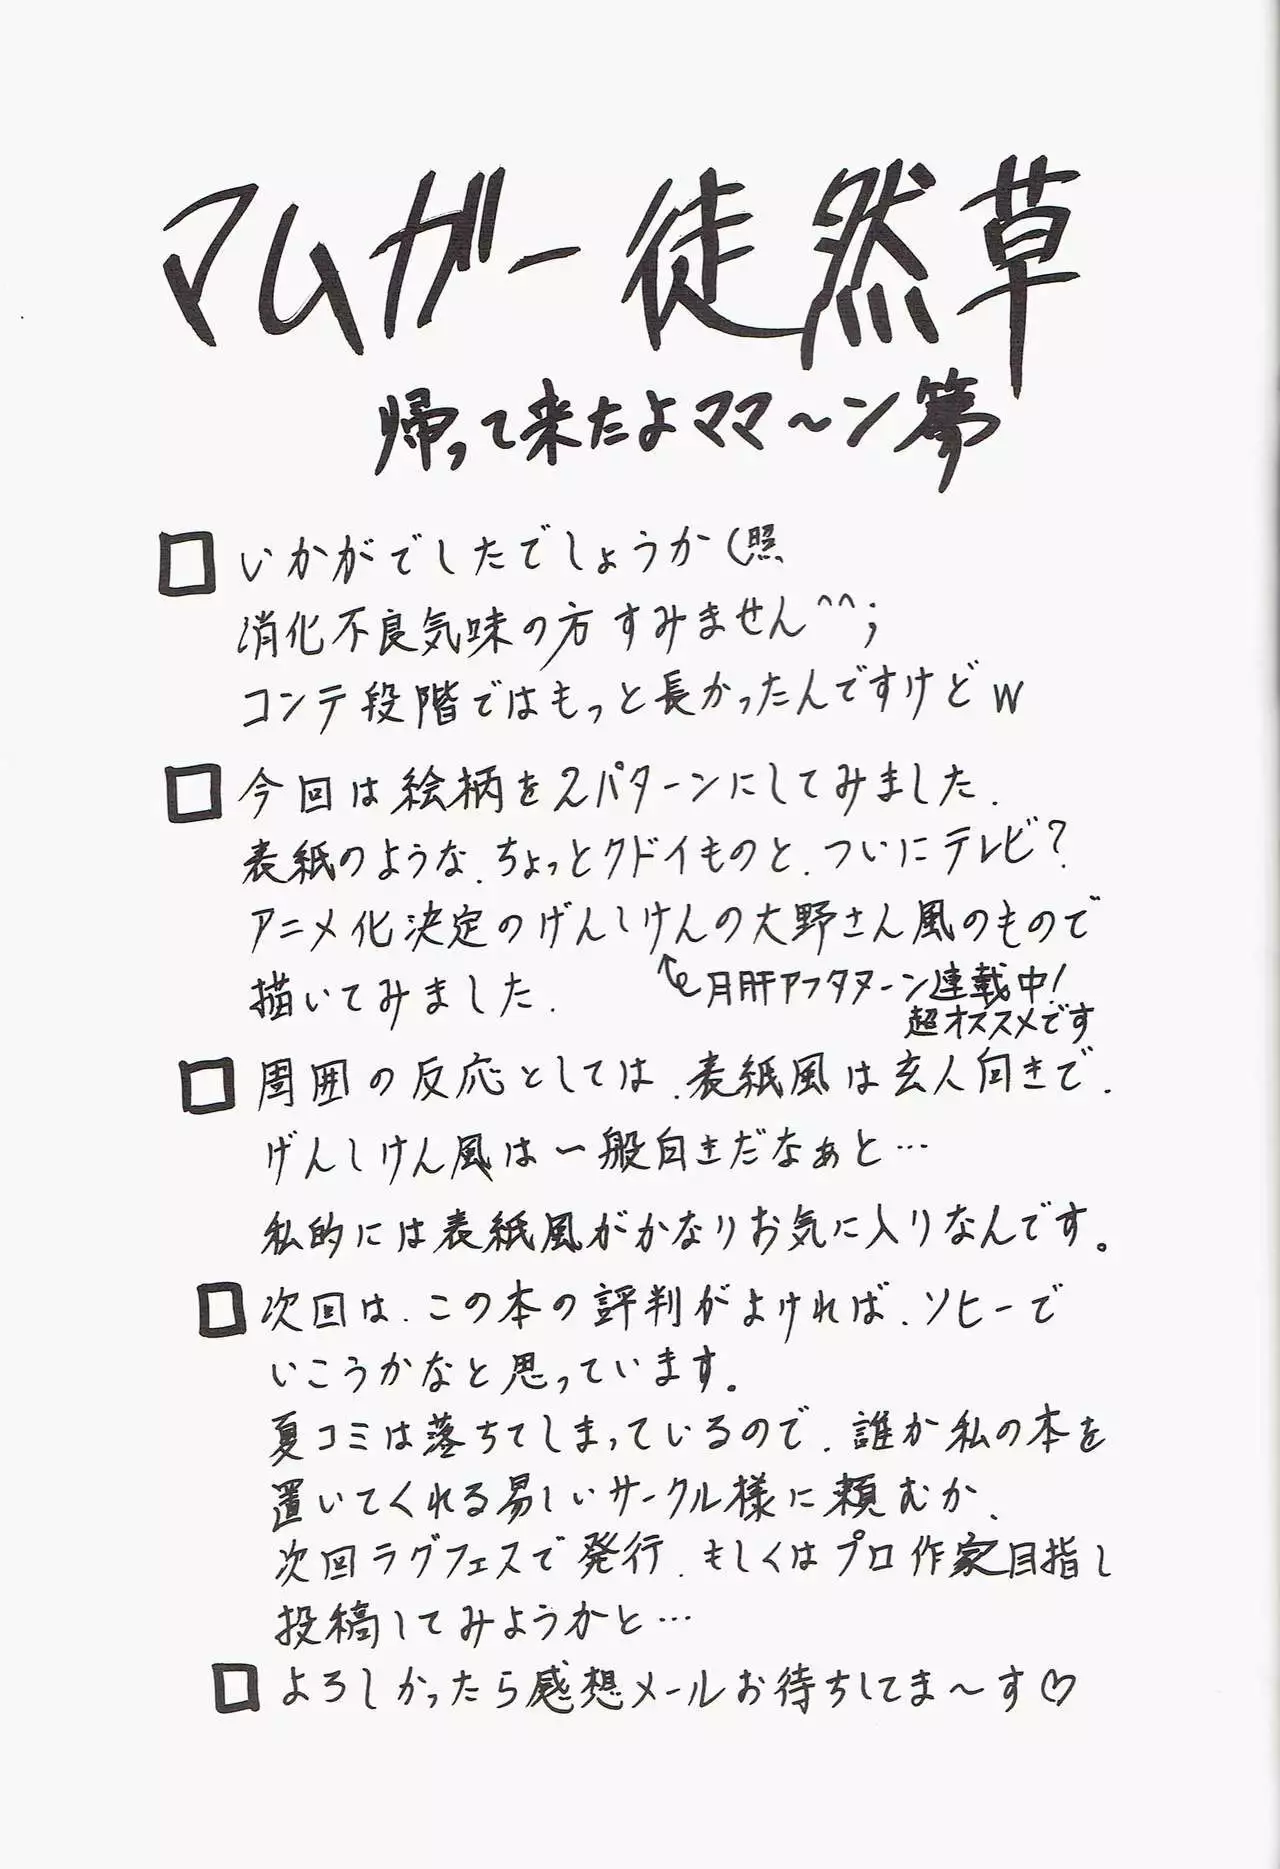 マムガー徒然草
帰って来たよママ〜ン篇
□ いかがでしたでしょうか(照
消化不良気味の方すみません^^;
コンテ段階ではもっと長かったんですけどw
□ 今回は絵柄を2パターンにしてみました.
表紙のような.ちょっとクドイものと.ついにテレビ?
アニメ化決定のげんしけんの大野さん風のもので
描いてみました.
月刊アフタヌーン連載中!
超オススメです
□ 周囲の反応としては.表紙風は玄人向きで.
げんしけん風は一般向きだなぁと…
私的には表紙風がかなりお気に入りなんです。
□ 次回は.この本の評判がよければ.ソヒーで
いこうかなと思っています。
夏コミは落ちてしまっているので.誰か私の本を
置いてくれる易しいサークル様に頼むか.
次回ラグフェスで発行.もしくはプロ作家目指し
投稿してみようかと…
□ よろしかったら感想メールお待ちしてま〜す♡